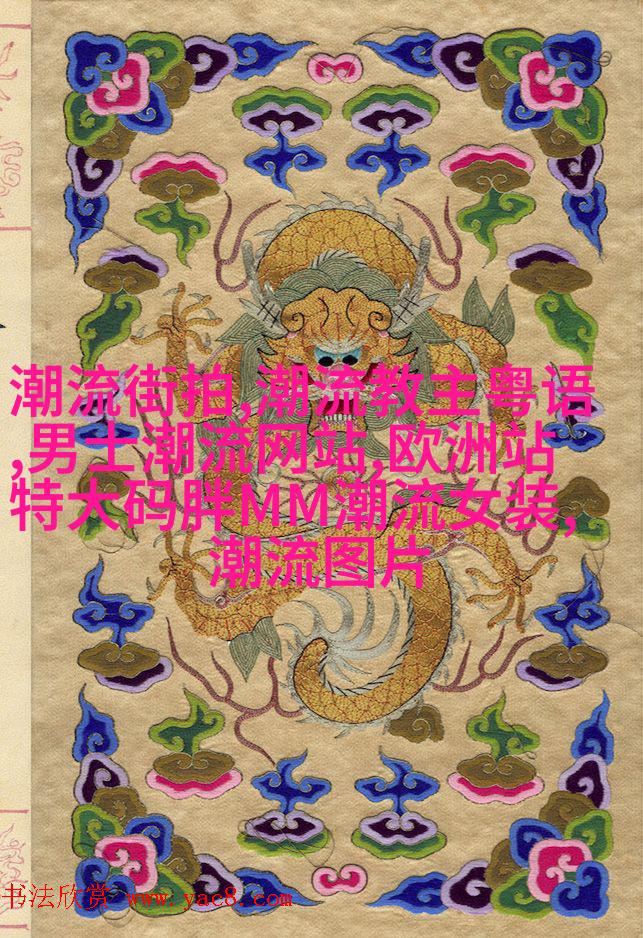 潮流街拍,潮流教主粤语
,男士潮流网站,欧洲站
特大码胖MM潮流女装,
潮流图片
书法欣赏 www.yac8.com